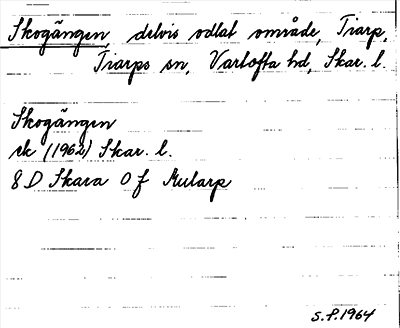 Skogängen, delvis odlat område, Tiarp,
Tiarps sn, Vartofta hd, Skar. l.
Skogängen
ek (1962) Skar. l.
8 D Skara 0 f Mularp
S.F. 1964